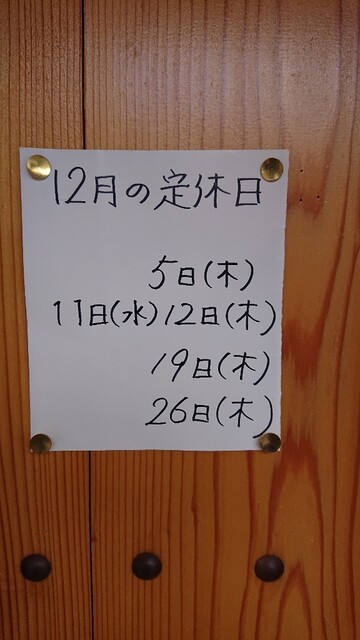 12月の定休日
5日(木)
11日(水)12日(木)
19日(木)
26日(木)